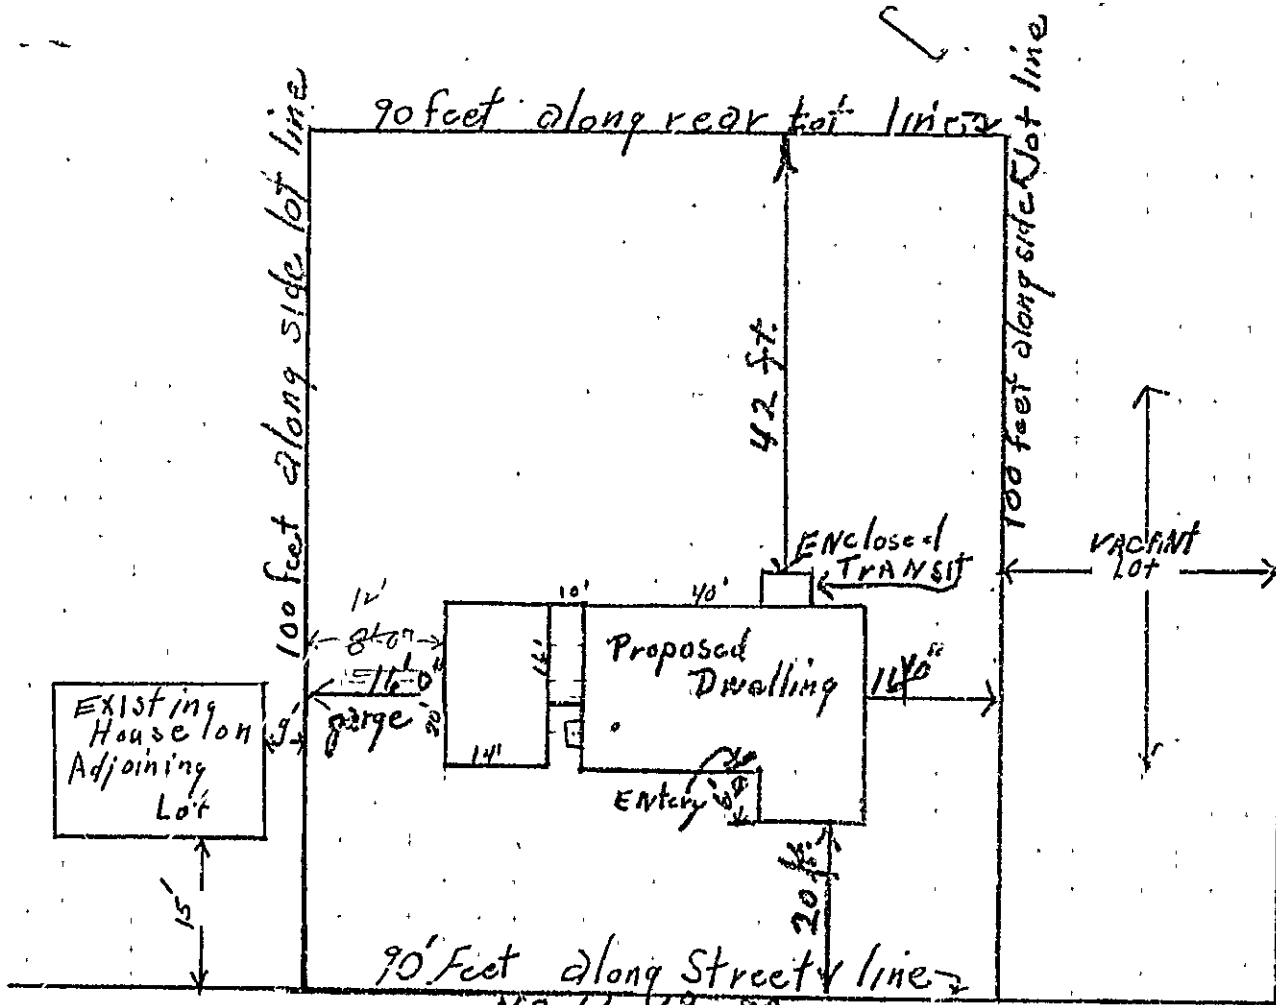 90 feet along rear lot line
100 feet along side lot line
100 feet along side lot line
42 ft.
ENclosed
TRANSIT
VACANT
LOT
12'
10'
40'
16'
Proposed
Dwelling
20'
garge
14'
Existing
House on
Adjoining
Lot
9'
Entery
15'
20
90' Feet along Street line